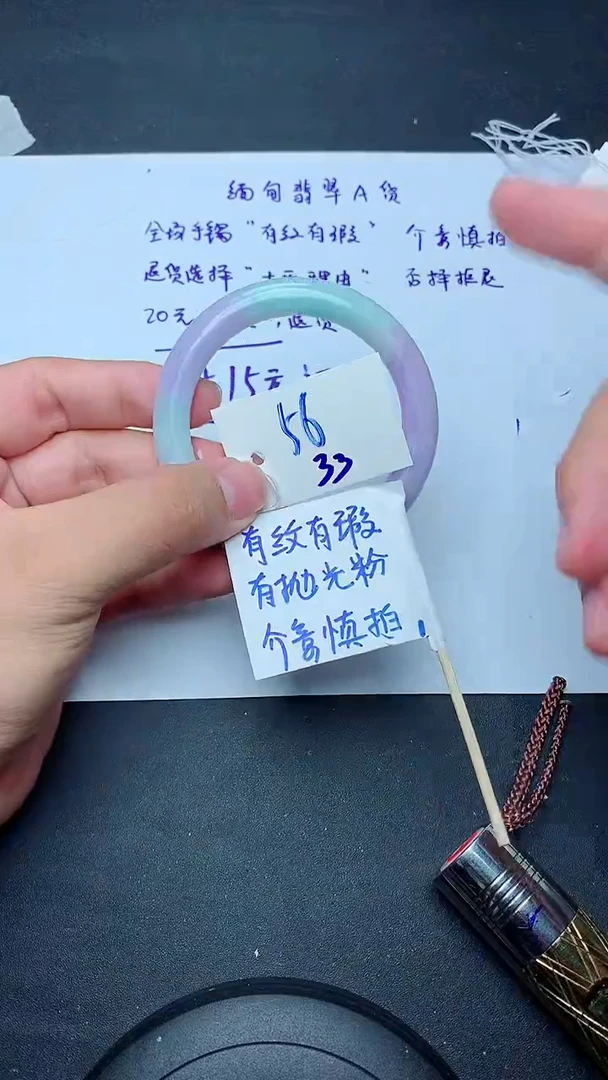 缅甸翡翠A货
全场手镯"有纹有瑕" 介意慎拍
退货选择"理由" 否择拒退
20元 退货
15元
56
33
有纹有瑕
有抛光粉
介意慎拍!